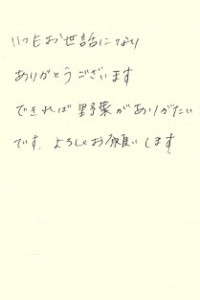 いつもお世話になり
ありがとうございます
できれば野菜がありがたい
です. よろしくお願いします